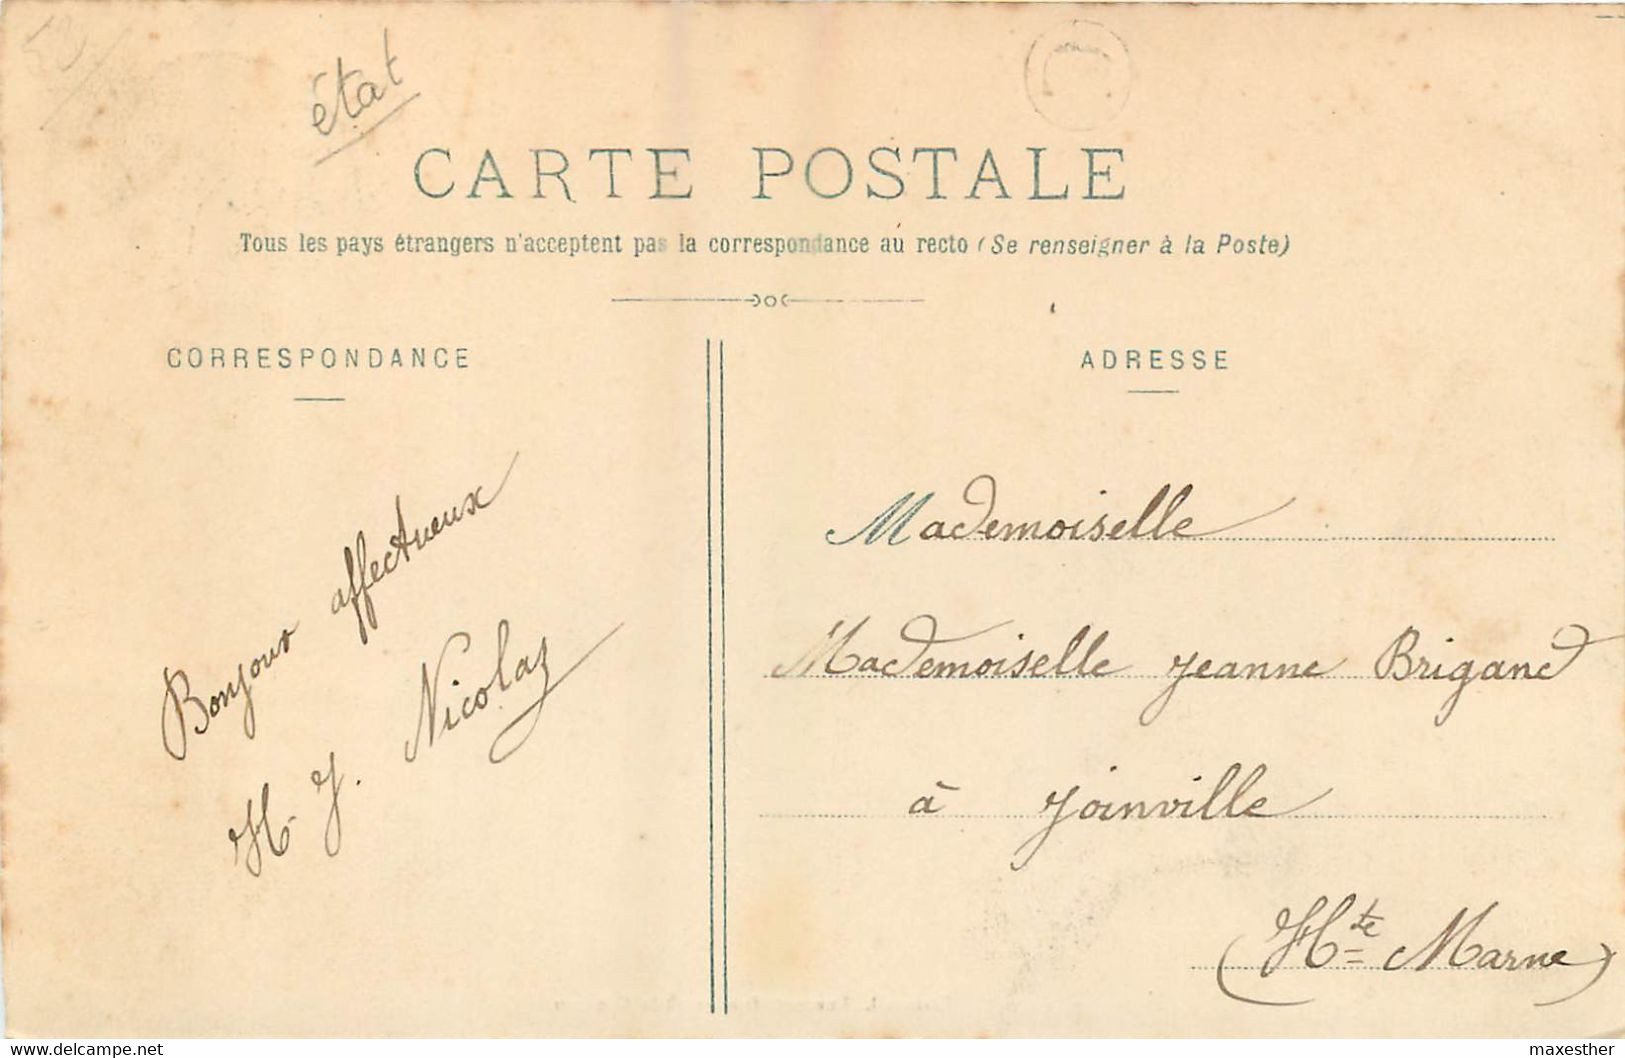 état
CARTE POSTALE
Tous les pays étrangers n'acceptent pas la correspondance au recto (Se renseigner à la Poste)
CORRESPONDANCE
Bonjour affectueux
H. J. Nicolas
ADRESSE
Mademoiselle
Mademoiselle Jeanne Brigand
à Joinville
(Hte Marne)
delcampe.net
maxesther